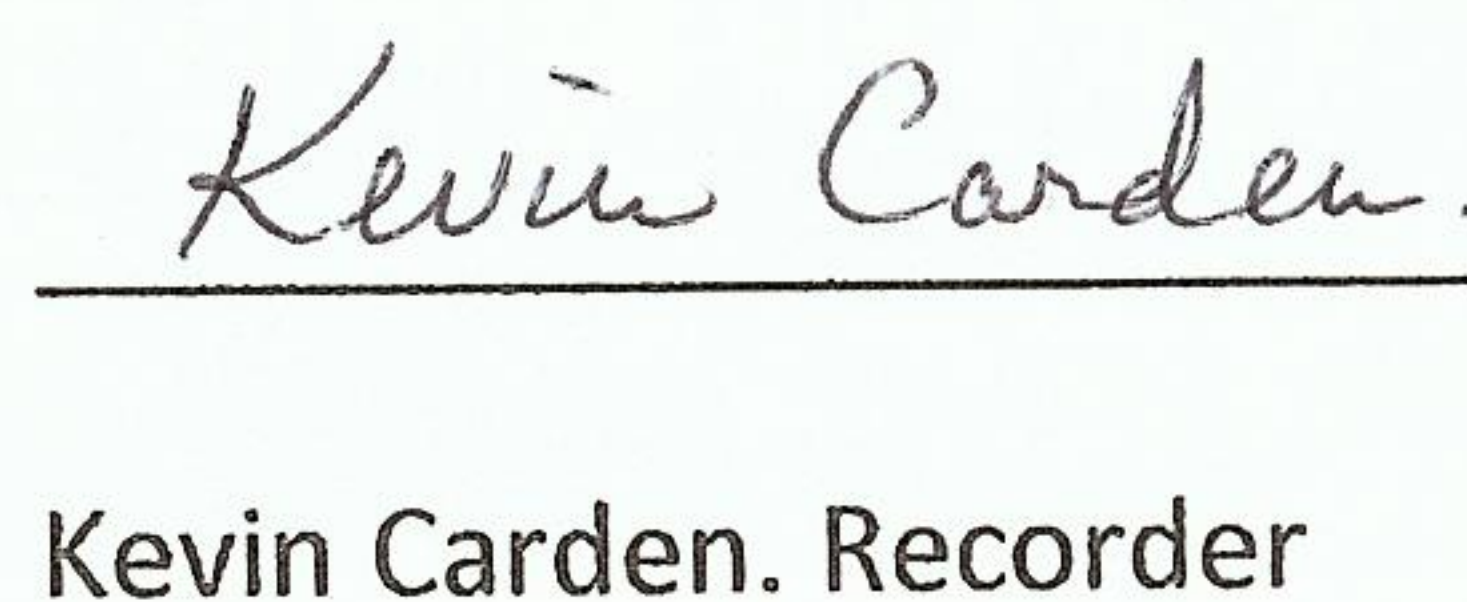 Kevin Carden.
Kevin Carden. Recorder